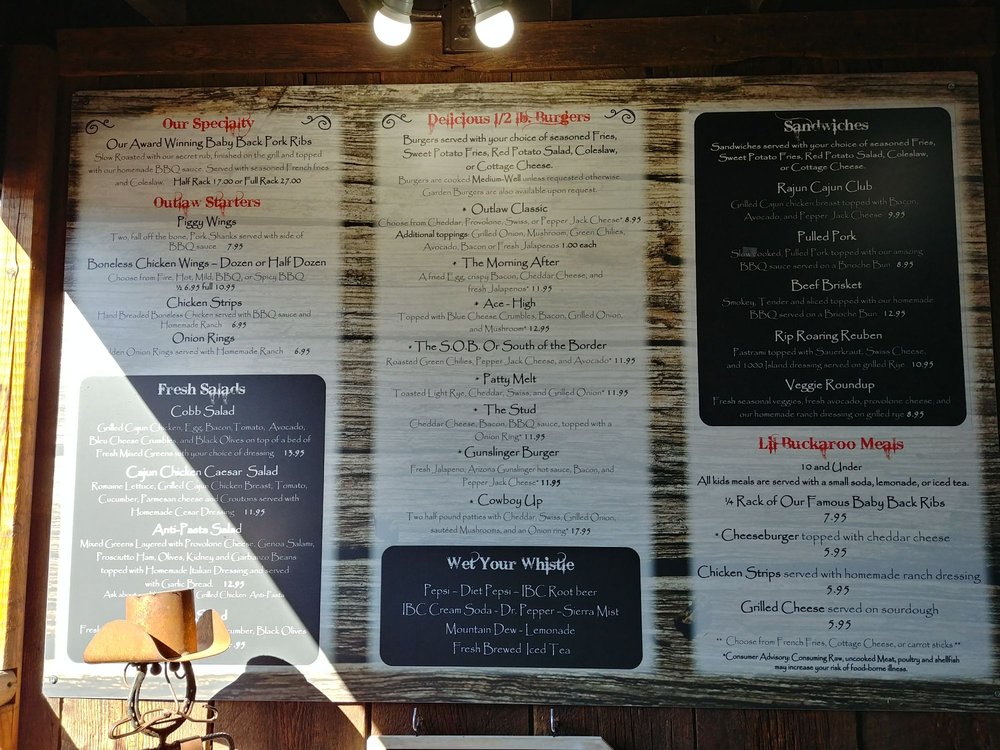 Our Specialty
Our Award Winning Baby Back Pork Ribs
Slow Roasted with our secret rub, finished on the grill and topped
with our homemade BBQ sauce. Served with seasoned French fries
and Coleslaw. Half Rack 17.00 or Full Rack 27.00
Outlaw Starters
Piggy Wings
Two, fall off the bone, Pork Shanks served with side of
BBQ sauce 7.95
Boneless Chicken Wings – Dozen or Half Dozen
Choose from Fire, Hot, Mild, BBQ, or Spicy BBQ
½ 6.95 full 10.95
Chicken Strips
Hand Breaded Boneless Chicken served with BBQ sauce and
Homemade Ranch 6.95
Onion Rings
Onion Rings served with Homemade Ranch 6.95
Fresh Salads
Cobb Salad
Grilled Cajun Chicken, Egg, Bacon, Tomato, Avocado,
Bleu Cheese Crumbles, and Black Olives on top of a bed of
Fresh Mixed Greens with your choice of dressing 13.95
Cajun Chicken Caesar Salad
Romaine Lettuce, Grilled Cajun Chicken Breast, Tomato,
Cucumber, Parmesan cheese and Croutons served with
Homemade Cesar Dressing 11.95
Anti-Pasta Salad
Mixed Greens Layered with Provolone Cheese, Genoa Salami,
Prosciutto Ham, Olives, Kidney and Garbanzo Beans
topped with Homemade Italian Dressing and served
with Garlic Bread. 12.95
Ask about Grilled Chicken Anti-Pasta
Black Olives
.95
Delicious 1/2 lb. Burgers
Burgers served with your choice of seasoned Fries,
Sweet Potato Fries, Red Potato Salad, Coleslaw,
or Cottage Cheese.
Burgers are cooked Medium-Well unless requested otherwise.
Garden Burgers are also available upon request.
* Outlaw Classic
Choose from Cheddar, Provolone, Swiss, or Pepper Jack Cheese* 8.95
Additional toppings: Grilled Onion, Mushroom, Green Chilies,
Avocado, Bacon or Fresh Jalapenos 1.00 each
* The Morning After
A fried Egg, crispy Bacon, Cheddar Cheese, and
fresh Jalapenos* 11.95
* Ace - High
Topped with Blue Cheese Crumbles, Bacon, Grilled Onion,
and Mushroom* 12.95
* The S.O.B. Or South of the Border
Roasted Green Chilies, Pepper Jack Cheese, and Avocado* 11.95
* Patty Melt
Toasted Light Rye, Cheddar, Swiss, and Grilled Onion* 11.95
* The Stud
Cheddar Cheese, Bacon, BBQ sauce, topped with a
Onion Ring* 11.95
* Gunslinger Burger
Fresh Jalapeno, Arizona Gunslinger hot sauce, Bacon, and
Pepper Jack Cheese* 11.95
* Cowboy Up
Two half pound patties with Cheddar, Swiss, Grilled Onion,
sautéed Mushrooms, and an Onion ring* 17.95
Wet Your Whistle
Pepsi - Diet Pepsi - IBC Root beer
IBC Cream Soda - Dr. Pepper - Sierra Mist
Mountain Dew - Lemonade
Fresh Brewed Iced Tea
Sandwiches
Sandwiches served with your choice of seasoned Fries,
Sweet Potato Fries, Red Potato Salad, Coleslaw,
or Cottage Cheese.
Rajun Cajun Club
Grilled Cajun chicken breast topped with Bacon,
Avocado, and Pepper Jack Cheese 9.95
Pulled Pork
Slow cooked, Pulled Pork topped with our amazing
BBQ sauce served on a Brioche Bun 8.95
Beef Brisket
Smokey, Tender and sliced topped with our homemade
BBQ served on a Brioche Bun 12.95
Rip Roaring Reuben
Pastrami topped with Sauerkraut, Swiss Cheese,
and 1000 Island dressing served on grilled Rye 10.95
Veggie Roundup
Fresh seasonal veggies, fresh avocado, provolone cheese, and
our homemade ranch dressing on grilled rye 8.95
Lil Buckaroo Meals
10 and Under
All kids meals are served with a small soda, lemonade, or iced tea.
¼ Rack of Our Famous Baby Back Ribs
7.95
* Cheeseburger topped with cheddar cheese
5.95
Chicken Strips served with homemade ranch dressing
5.95
Grilled Cheese served on sourdough
5.95
** Choose from French Fries, Cottage Cheese, or carrot sticks **
*Consumer Advisory: Consuming Raw, uncooked Meat, poultry and shellfish
may increase your risk of food-borne illness.